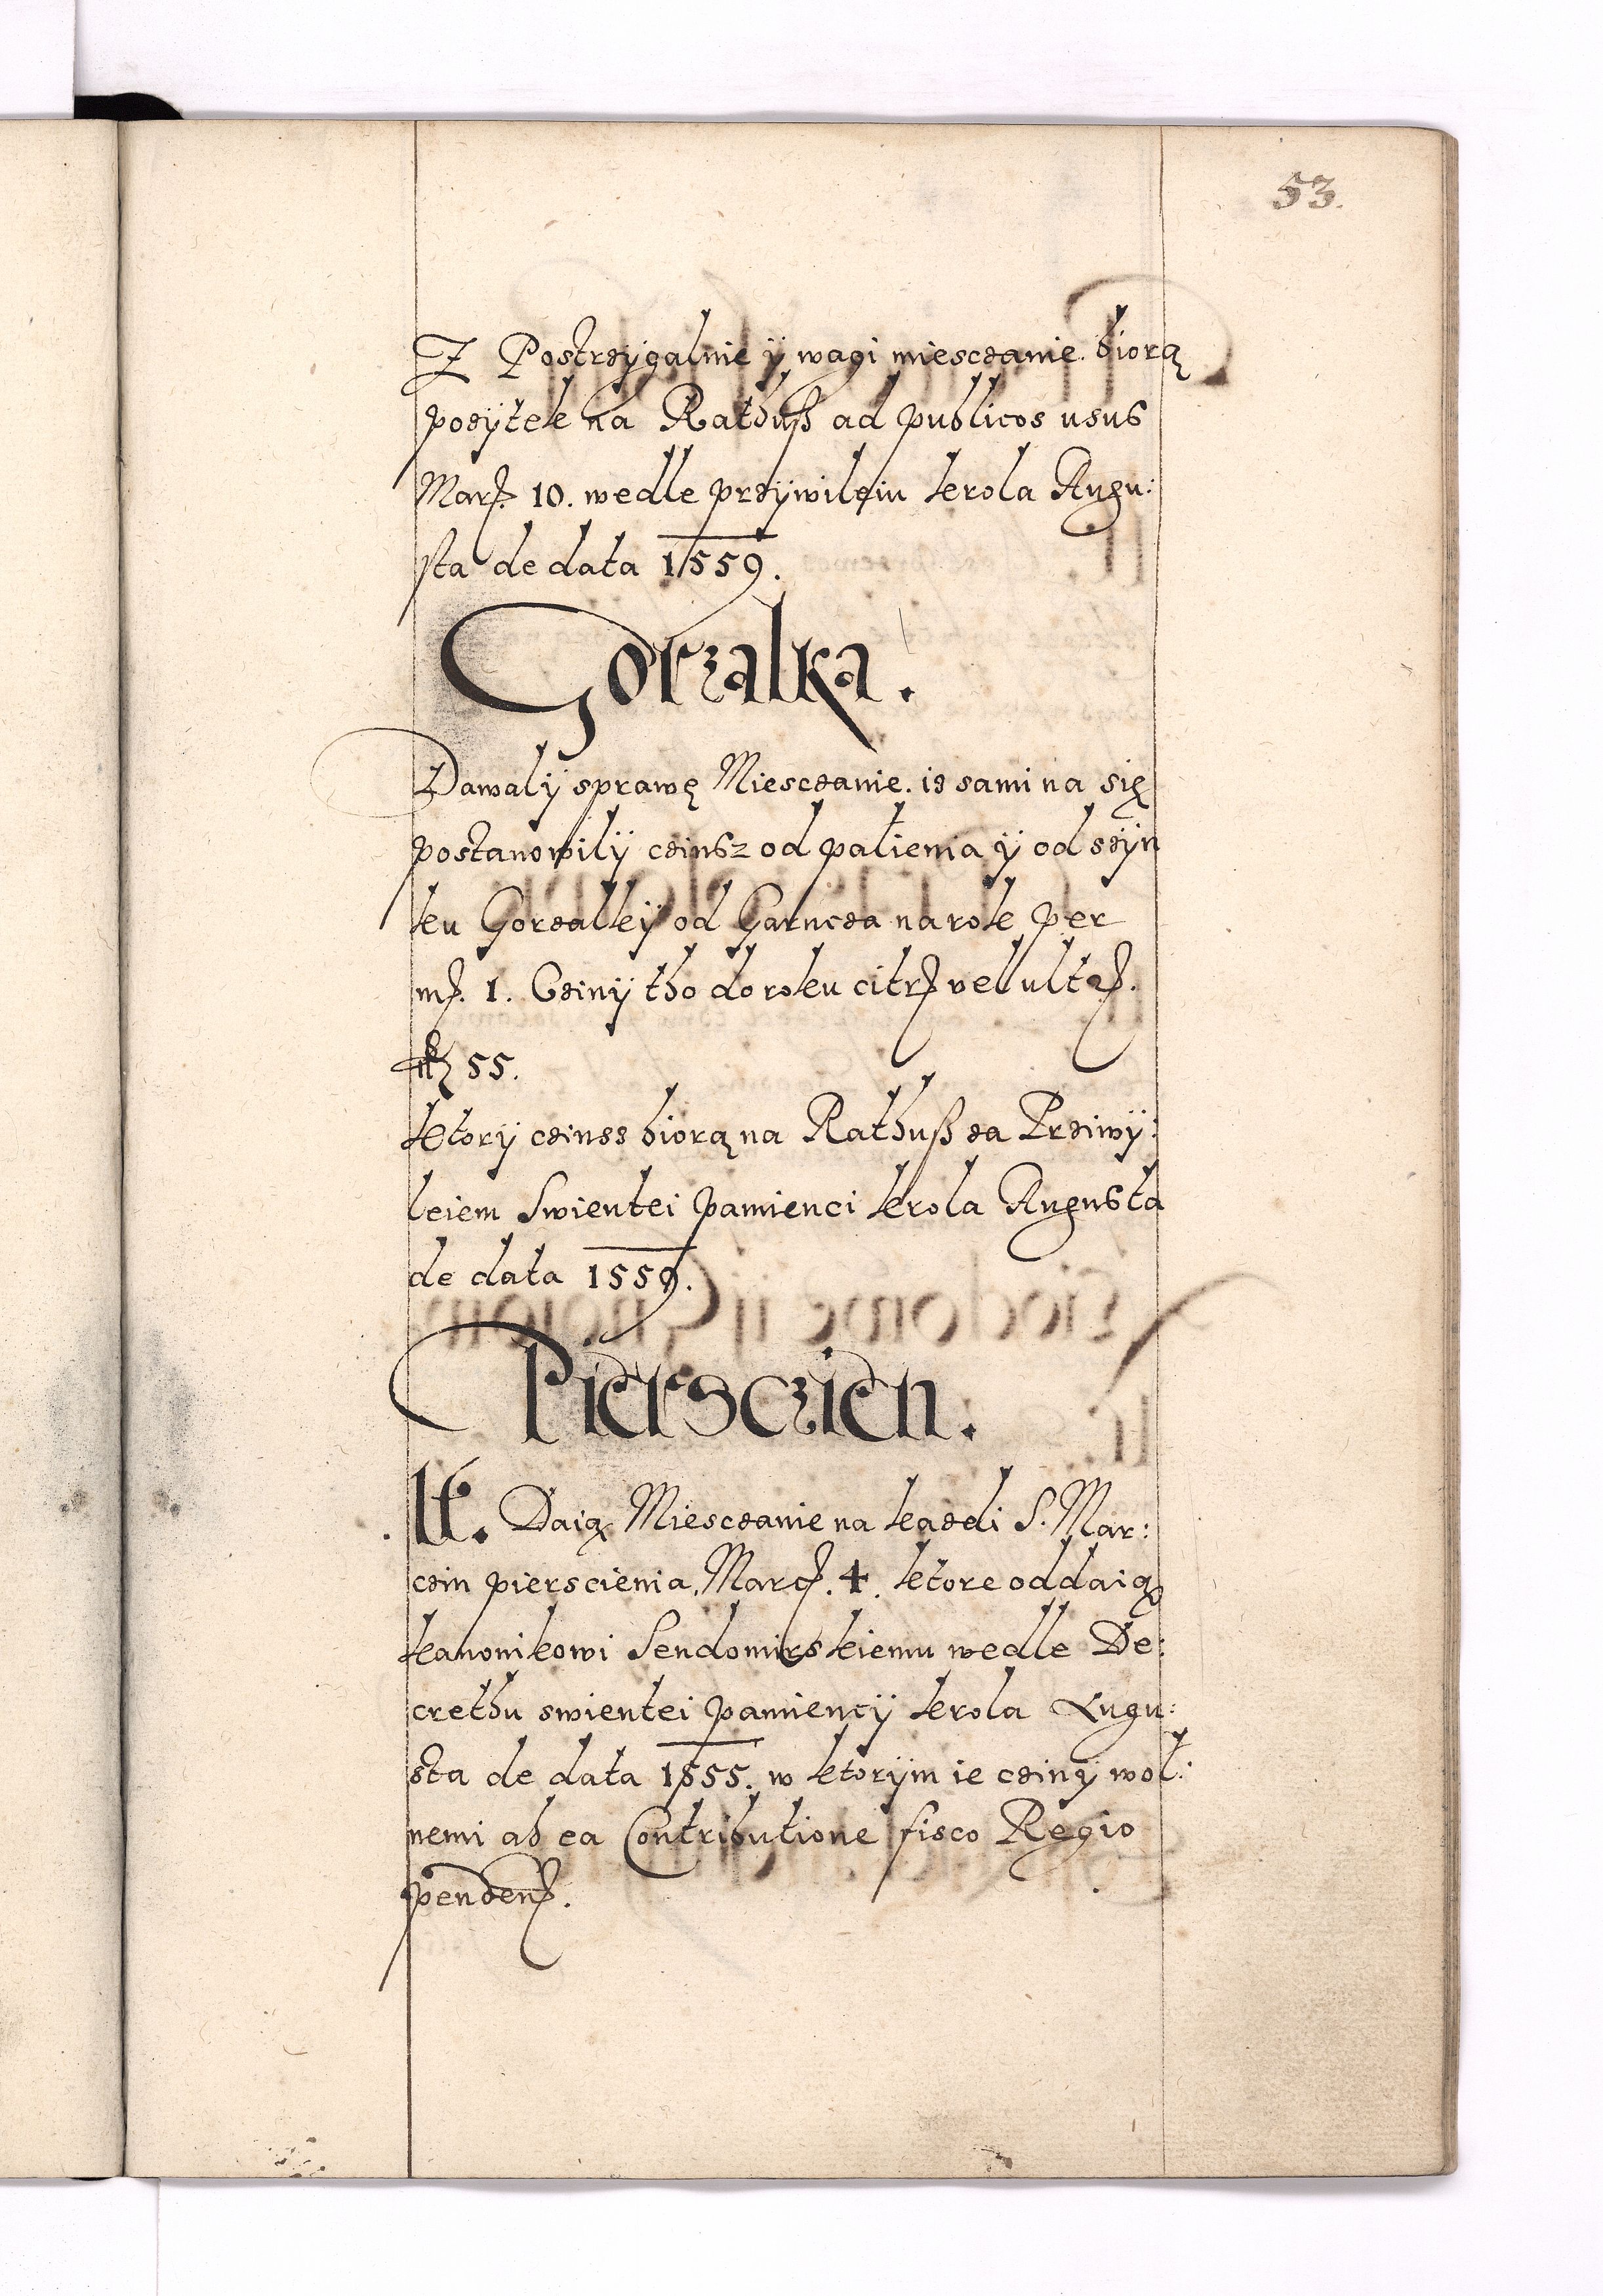 53.
Z Postrzygalnie ÿ wagi miesczanie biorą
pozÿtek na Rathuß ad publicos usus
Març. 10. wedle przÿwileiu krola Augu:
sta de data 1559.
Gorzalka.
Dawalÿ sprawę Miesczanie. iz sami na się
postanowilÿ czinsz od palienia ÿ od szÿn
ku Gorzalkÿ od Garncza na rok per
mç. 1. Czinÿ tho do roku citra vel ultra.
55.
ktory czinss biorą na Rathuß za Prziwÿ:
leiem Swientei pamienci krola Augusta
de data 1559.
Piersczien.
It. Daią Miesczanie na kazdi S. Mar:
czin pierscienia, Març. 4. ktore oddaią
kanonikowi Sendomirskiemu wedle De:
crethu swientei pamiencÿ krola Augu:
sta de data 1555. w ktorÿm ie czinÿ wol:
nemi ab ea Contributione fisco Regio
pendenç.